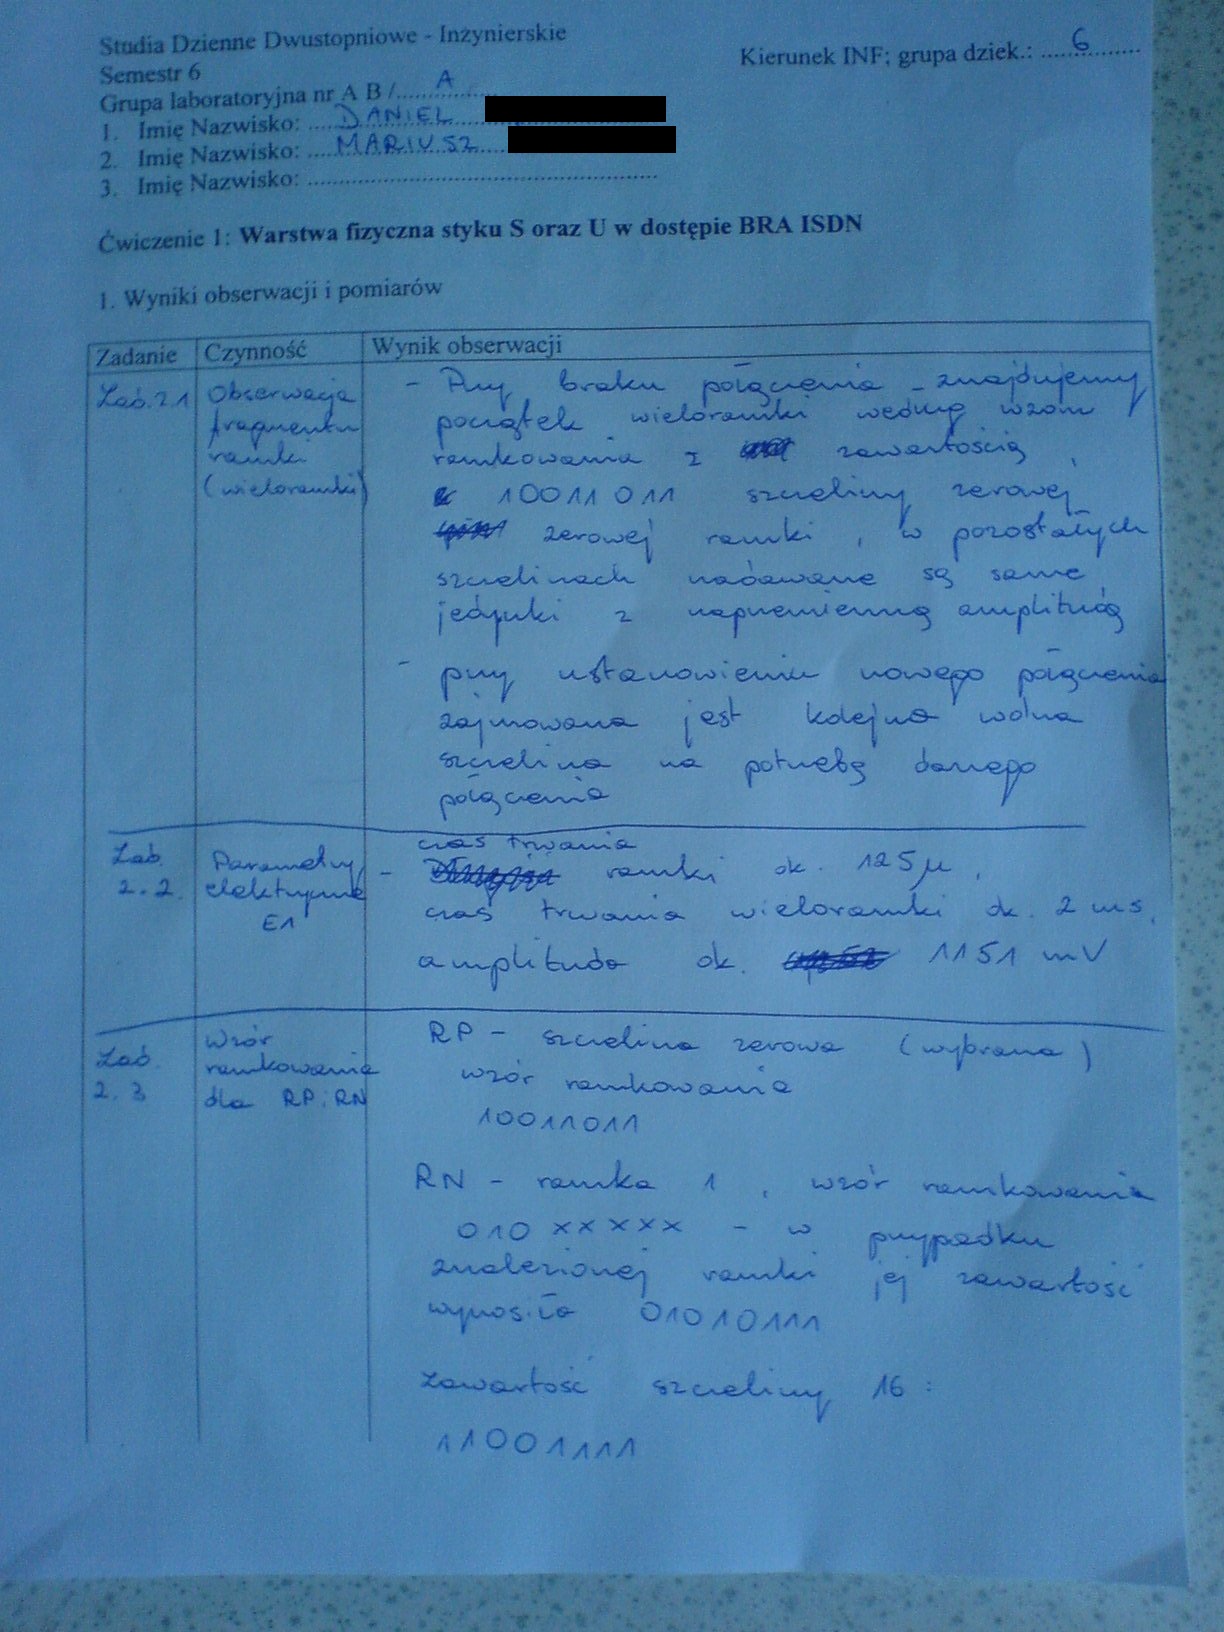 Studia Dzienne Dwustopniowe - Inżynierskie
Semestr 6
Kierunek INF; grupa dziek.: ....6....
Grupa laboratoryjna nr A B /....A....
1. Imię Nazwisko: ....DANIEL
2. Imię Nazwisko: ....MARIUSZ....
3. Imię Nazwisko: ....
Ćwiczenie 1: Warstwa fizyczna styku S oraz U w dostępie BRA ISDN
1. Wyniki obserwacji i pomiarów
Zadanie Czynność Wynik obserwacji
Lab. 2.1 Obserwacja fragmentu ramki (wieloramki)
- Przy braku połączenia - znajdujemy
początek wieloramki według wzoru
ramkowania z zawartością
10011011 szczeliny zerowej
zerowej ramki, w pozostałych
szczelinach nadawane są same
jedynki z naprzemienną amplitudą
- przy ustanowieniu nowego połączenia
zajmowana jest kolejna wolna
szczelina na potrzebę danego
połączenia
Lab. 2.2. Parametry elektryczne E1
czas trwania
- ramki ok. 125μ,
czas trwania wieloramki ok. 2 ms,
amplituda ok. 1151 mV
Lab. 2.3 Wzór ramkowania dla RP i RN
RP - szczelina zerowa (wybrana)
wzór ramkowania
10011011
RN - ramka 1, wzór ramkowania
010xxxxx - w przypadku
znalezionej ramki jej zawartość
wynosiła 01010111
zawartość szczeliny 16:
11001111